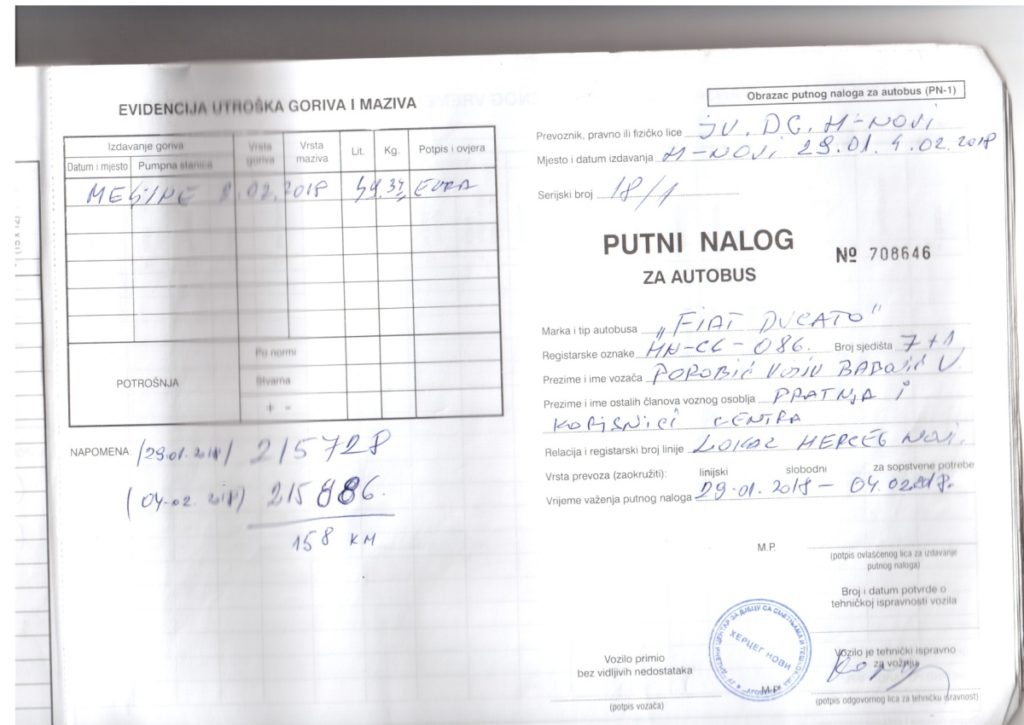 EVIDENCIJA UTROŠKA GORIVA I MAZIVA
Izdavanje goriva
Datum i mjesto
Pumpna stanica
Vrsta goriva
Vrsta maziva
Lit.
Kg.
Potpis i ovjera
02.2018 EURA
POTROŠNJA
Po normi
Stvarna
+ -
NAPOMENA: (29.01.2018) 215728
(04.02.2018) 215886.
158 KM
Obrazac putnog naloga za autobus (PN-1)
Prevoznik, pravno ili fizičko lice JU. DC. H-NOVI
Mjesto i datum izdavanja H-NOVI 29.01. 4.02.2018
Serijski broj 18/1
PUTNI NALOG
ZA AUTOBUS
№ 708646
Marka i tip autobusa „FIAT DUCATO"
Registarske oznake HN-CG-086. Broj sjedišta 7+1
Prezime i ime vozača POROBIĆ
Prezime i ime ostalih članova voznog osoblja PRATNJA I
KORISNICI CENTRA
Relacija i registarski broj linije LOKAL HERCEG NOVI.
Vrsta prevoza (zaokružiti): linijski slobodni za sopstvene potrebe
Vrijeme važenja putnog naloga 29.01.2018 - 04.02.2018.
M.P.
(potpis ovlašćenog lica za izdavanje
putnog naloga)
Broj i datum potvrde o
tehničkoj ispravnosti vozila
Vozilo primio
bez vidljivih nedostataka
(potpis vozača)
ХЕРЦЕГ НОВИ
M.P.
Vozilo je tehnički ispravno
za vožnju
(potpis odgovornog lica za tehničku ispravnost)